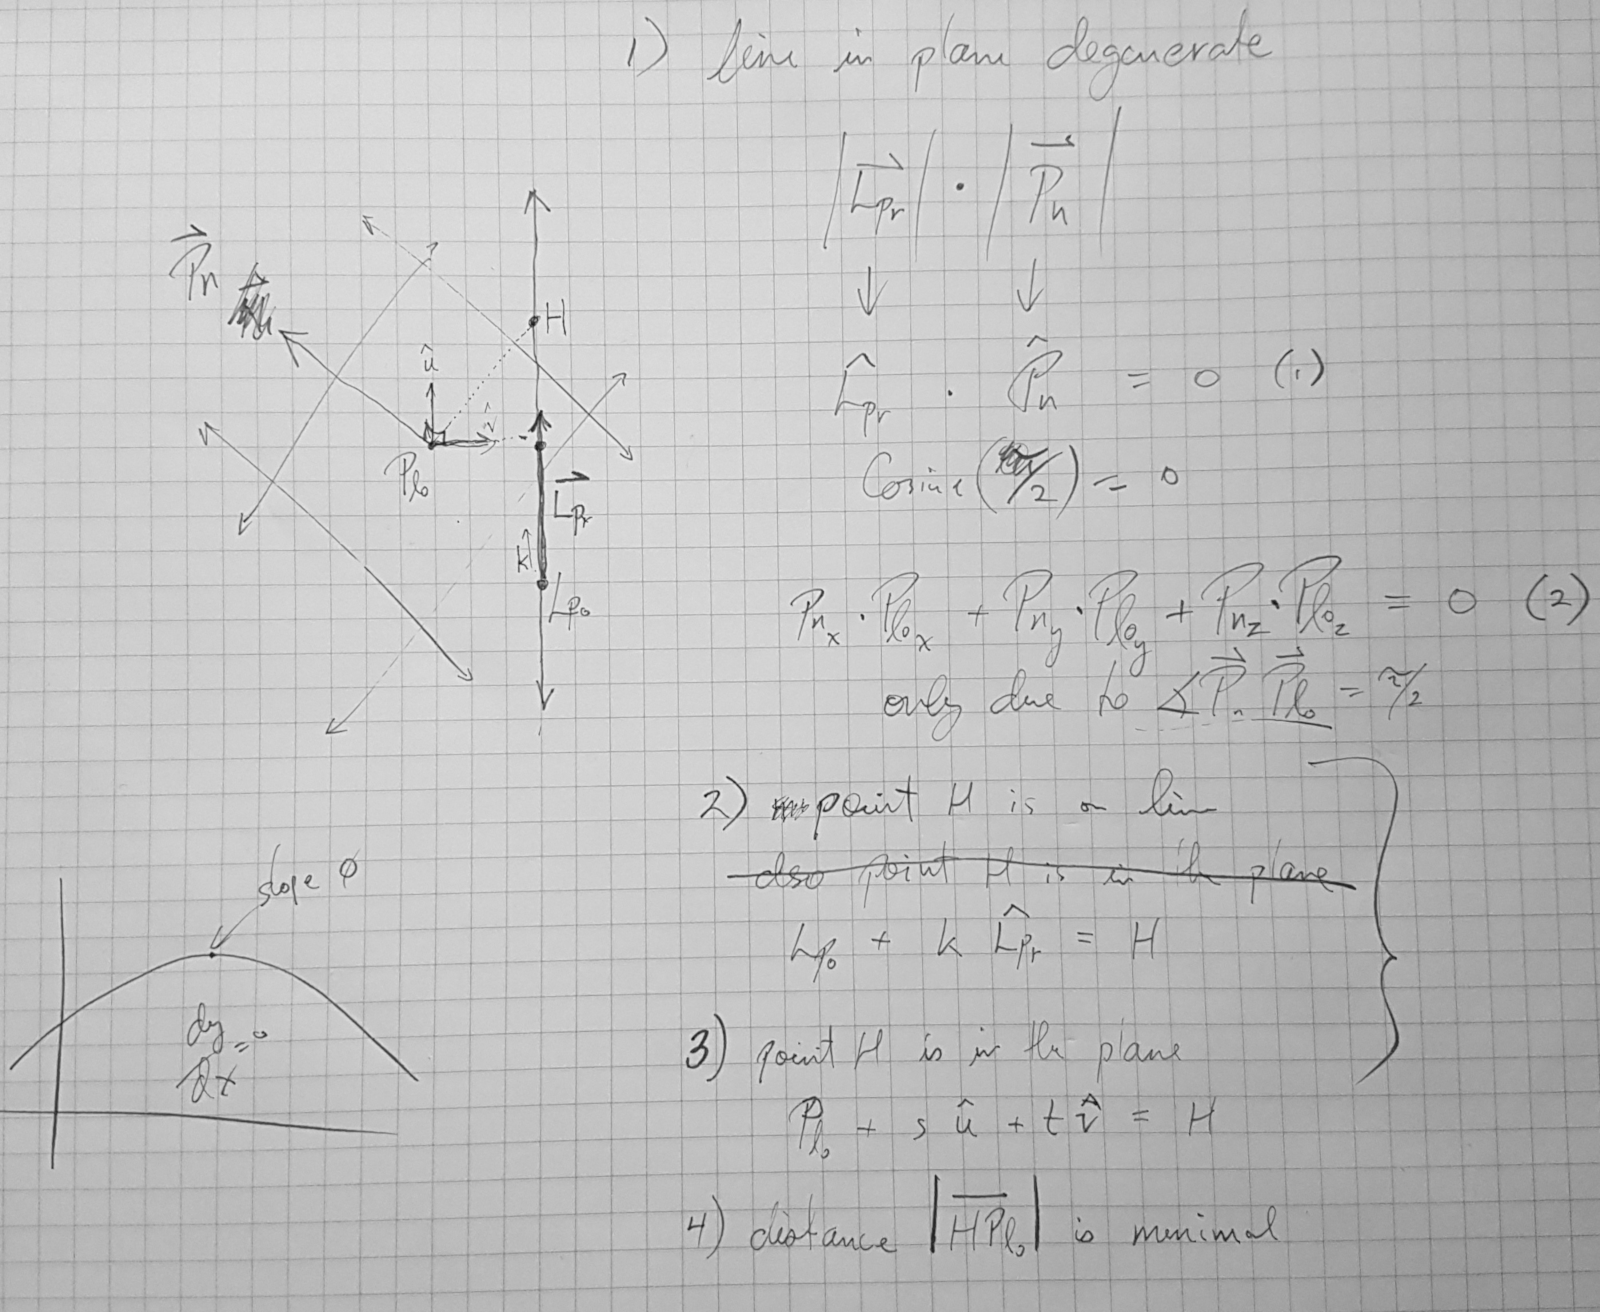 1) line in plane degenerate
|L⃗pr| · |P⃗n|
↓ ↓
L̂pr · P̂n = 0 (1)
Cosine (π/2) = 0
Pnx · Pl₀x + Pny · Pl₀y + Pnz · Pl₀z = 0 (2)
only due to ∡P⃗n P⃗l₀ = π/2
2) point H is on line
also point H is in the plane
Lp₀ + k L̂pr = H
3) point H is in the plane
Pl₀ + s û + t v̂ = H
4) distance |HPl₀| is minimal
P⃗n
H
û
v̂
Pl₀
L⃗pr
k
Lp₀
slope φ
dy/dx = 0